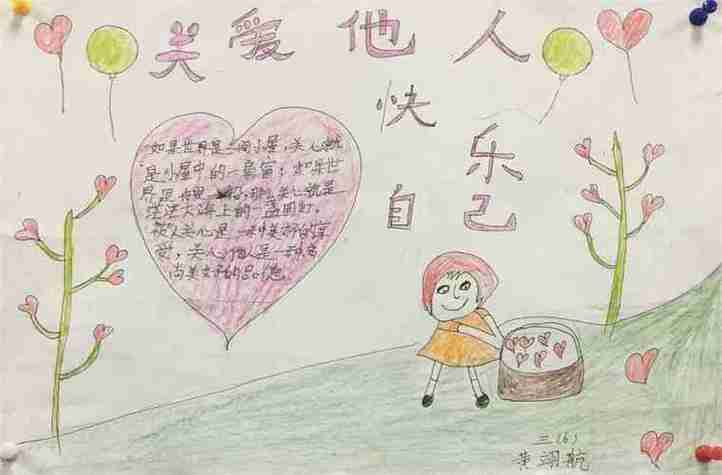 关爱他人
快乐
自己
如果世界是一间小屋,关心就
是小屋中的一扇窗;如果世
界是一艘船,那么关心就是
茫茫大海上的一盏明灯。
被人关心是一种美好的享
受,关心他人是一种高
尚美好的品德。
三(6)
黄翊航